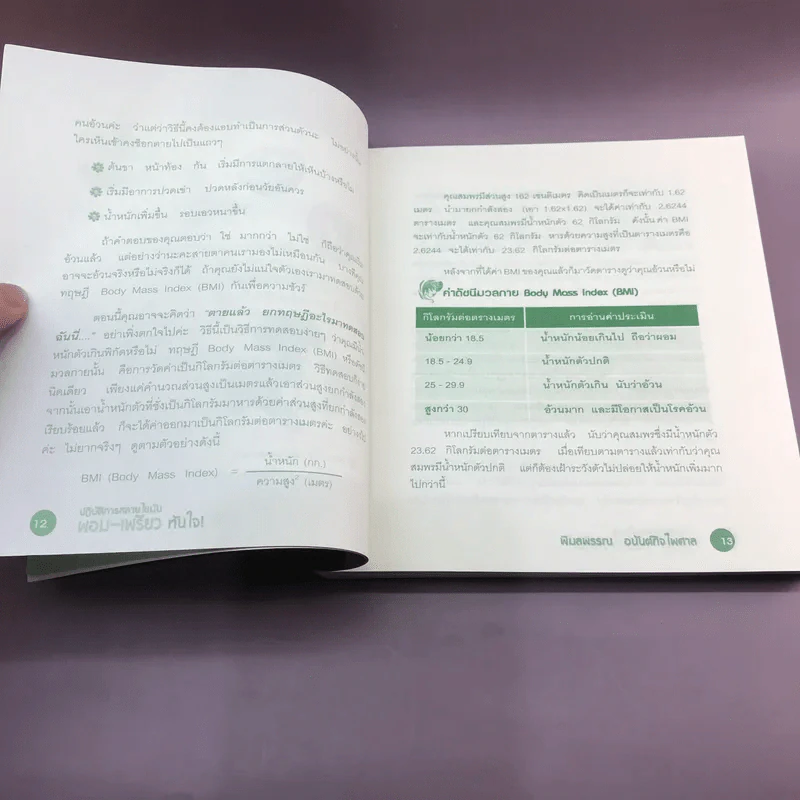 คนอ้วนค่ะ ว่าแต่ว่าวิธีนี้คงต้องแอบทำเป็นการส่วนตัวนะ
ใครเห็นเข้าคงช็อกตายไปเป็นแถวๆ
ต้นขา หน้าท้อง ก้น เริ่มมีการแตกลายให้เห็นบ้างหรือไม่
เริ่มมีอาการปวดเข่า ปวดหลังก่อนวัยอันควร
น้ำหนักเพิ่มขึ้น รอบเอวหนาขึ้น
ถ้าคำตอบของคุณตอบว่า ใช่ มากกว่า ไม่ใช่ ก็ถือว่าคุณเป็น
อ้วนแล้ว แต่อย่างว่านะคะสายตาคนเรามองไม่เหมือนกัน บางทีคุณ
อาจจะอ้วนจริงหรือไม่จริงก็ได้ ถ้าคุณยังไม่แน่ใจตัวเองเรามาทดสอบด้วย
ทฤษฎี Body Mass Index (BMI) กันเพื่อความชัวร์
ตอนนี้คุณอาจจะคิดว่า "ตายแล้ว ยกทฤษฎีอะไรมาทดสอบ
ฉันนี่...." อย่าเพิ่งตกใจไปค่ะ วิธีนี้เป็นวิธีการทดสอบง่ายๆ ว่าคุณมีน้ำ
หนักตัวเกินพิกัดหรือไม่ ทฤษฎี Body Mass Index (BMI) หรือดัชนี
มวลกายนั้น คือการวัดค่าเป็นกิโลกรัมต่อตารางเมตร วิธีทดสอบก็ง่าย
นิดเดียว เพียงแค่คำนวณส่วนสูงเป็นเมตรแล้วเอาส่วนสูงยกกำลังสอง
จากนั้นเอาน้ำหนักตัวที่ชั่งเป็นกิโลกรัมมาหารด้วยค่าส่วนสูงที่ยกกำลังสอง
เรียบร้อยแล้ว ก็จะได้ค่าออกมาเป็นกิโลกรัมต่อตารางเมตรค่ะ อย่างงง
ค่ะ ไม่ยากจริงๆ ดูตามตัวอย่างดังนี้
BMI (Body Mass Index) = น้ำหนัก (กก.)
ความสูง² (เมตร)
12
ปฏิบัติการสลายไขมัน
ผอม-เพรียว ทันใจ!
คุณสมพรมีส่วนสูง 162 เซนติเมตร คิดเป็นเมตรก็จะเท่ากับ 1.62
เมตร นำมายกกำลังสอง (เอา 1.62x1.62) จะได้ค่าเท่ากับ 2.6244
ตารางเมตร และคุณสมพรมีน้ำหนักตัว 62 กิโลกรัม ดังนั้น ค่า BMI
จะเท่ากับน้ำหนักตัว 62 กิโลกรัม หารด้วยความสูงที่เป็นตารางเมตรคือ
2.6244 จะได้เท่ากับ 23.62 กิโลกรัมต่อตารางเมตร
หลังจากที่ได้ค่า BMI ของคุณแล้วก็มาวัดตารางดูว่าคุณอ้วนหรือไม่
ค่าดัชนีมวลกาย Body Mass Index (BMI)
กิโลกรัมต่อตรางเมตร การอ่านค่าประเมิน
น้อยกว่า 18.5 น้ำหนักน้อยเกินไป ถือว่าผอม
18.5 - 24.9 น้ำหนักตัวปกติ
25 - 29.9 น้ำหนักตัวเกิน นับว่าอ้วน
สูงกว่า 30 อ้วนมาก และมีโอกาสเป็นโรคอ้วน
หากเปรียบเทียบจากตารางแล้ว นับว่าคุณสมพรซึ่งมีน้ำหนักตัว
23.62 กิโลกรัมต่อตารางเมตร เมื่อเทียบตามตารางแล้วเท่ากับว่าคุณ
สมพรมีน้ำหนักตัวปกติ แต่ก็ต้องเฝ้าระวังตัวไม่ปล่อยให้น้ำหนักเพิ่มมาก
ไปกว่านี้
พิมลพรรณ อนันต์กิจไพศาล 13